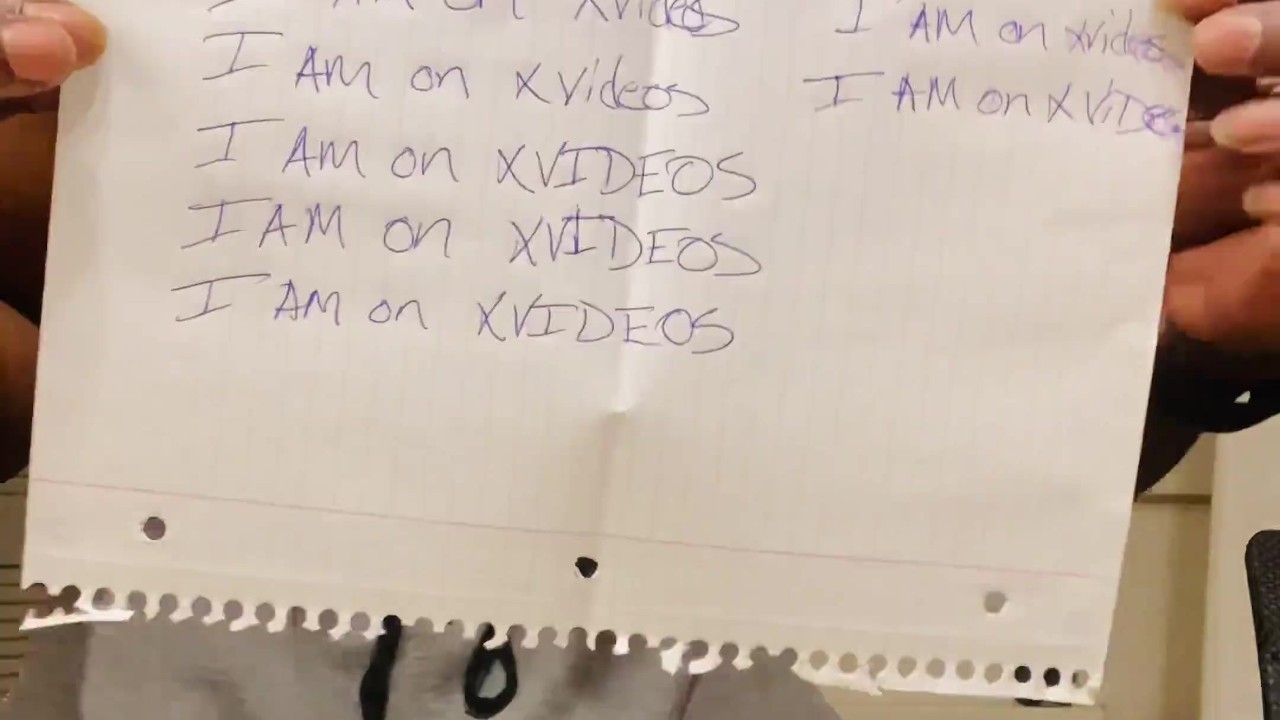 I AM on xvideos
I AM on xvideos
I AM on XVIDEOS
I AM on XVIDEOS
I AM on XVIDEOS
I AM on xvideos
I AM on XVIDE